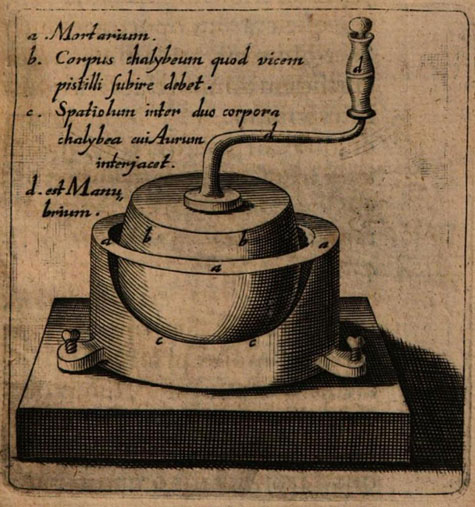 a. Mortarium.
b. Corpus chalybeum quod vicem
pistilli subire debet.
c. Spatiolum inter duo corpora
chalybea cui Aurum
interjacet.
d. est Manu,
brium.
d
d
b b
a a
a
c c